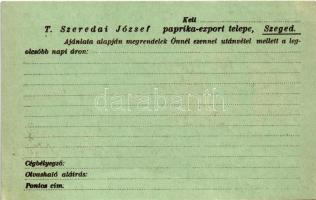 Kelt
T. Szeredai József paprika-export telepe, Szeged.
Ajánlata alapján megrendelek Önnél ezennel utánvétel mellett a leg-
olcsóbb napi áron:
darabanth
Cégbélyegző:
Olvasható aláírás:
Pontos cím.